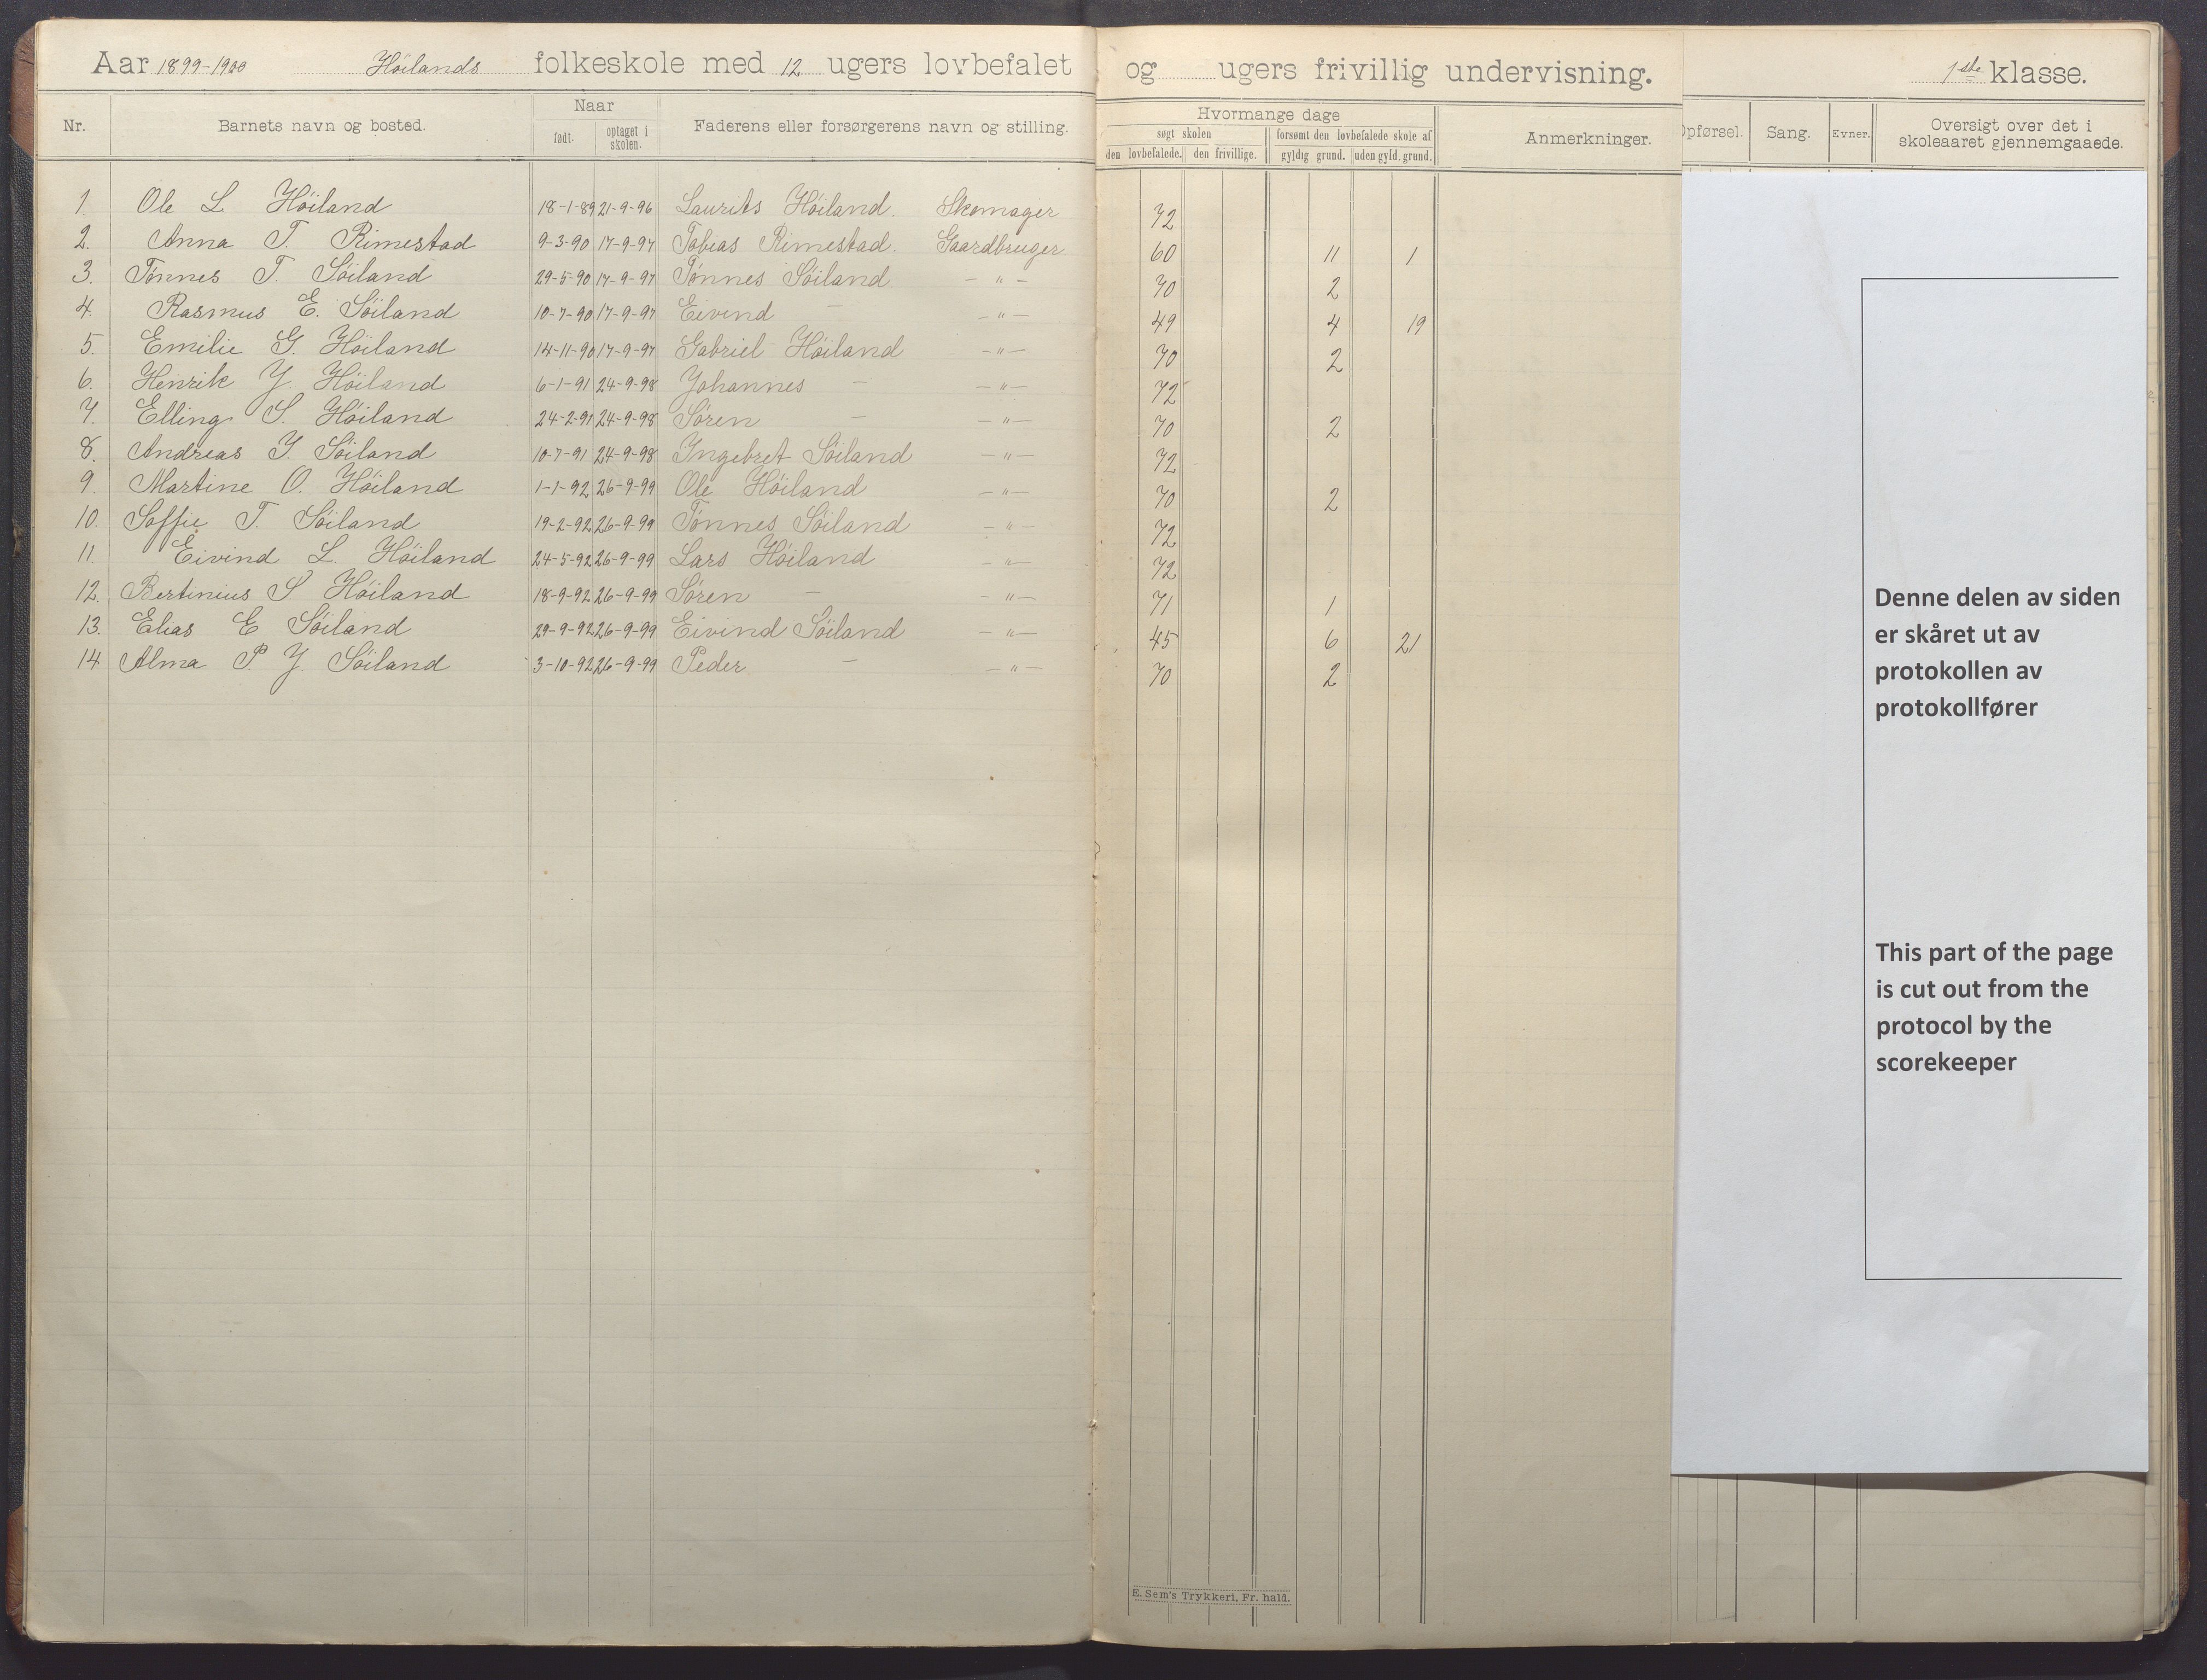 Aar 1899-1900 Höilands folkeskole med 12 ugers lovbefalet og ugers frivillig undervisning. 1ste klasse.
Nr. Barnets navn og bosted. Naar født. optaget i skolen. Faderens eller forsørgerens navn og stilling. Hvormange dage søgt skolen den lovbefalede. den frivillige. forsømt den lovbefalede skole af gyldig grund. uden gyld. grund. Anmerkninger. Opførsel. Sang. Evner. Oversigt over det i skoleaaret gjennemgaaede.
1. Ole L Höiland 18-1-89 21-9-96 Laurits Höiland. Skomager 72
2. Anna T. Rimestad 9-3-90 17-9-97 Tobias Rimestad. Gaardbruger 60 11 1
3. Tönnes T. Söiland 29-5-90 17-9-97 Tönnes Söiland — " — 70 2
4. Rasmus E. Söiland 10-7-90 17-9-97 Eivind — — " — 49 4 19
5. Emilie G. Höiland 14-11-90 17-9-97 Gabriel Höiland — " — 70 2
6. Henrik J. Höiland 6-1-91 24-9-98 Johannes — — " — 72
7. Elling S. Höiland 24-2-91 24-9-98 Sören — — " — 70 2
8. Andreas I. Söiland 10-7-91 24-9-98 Ingebret Söiland — " — 72
9. Martine O. Höiland 1-1-92 26-9-99 Ole Höiland — " — 70 2
10. Soffie T. Söiland 19-2-92 26-9-99 Tönnes Söiland — " — 72
11. Eivind L. Höiland 24-5-92 26-9-99 Lars Höiland — " — 72
12. Bertinius S. Höiland 18-9-92 26-9-99 Sören — — " — 71 1
13. Elias E Söiland 29-9-92 26-9-99 Eivind Söiland — " — 45 6 21
14 Alma P. J. Söiland 3-10-92 26-9-99 Peder — — " — 70 2
Denne delen av siden
er skåret ut av
protokollen av
protokollfører
This part of the page
is cut out from the
protocol by the
scorekeeper
E. Sem's Trykkeri, Fr. hald.